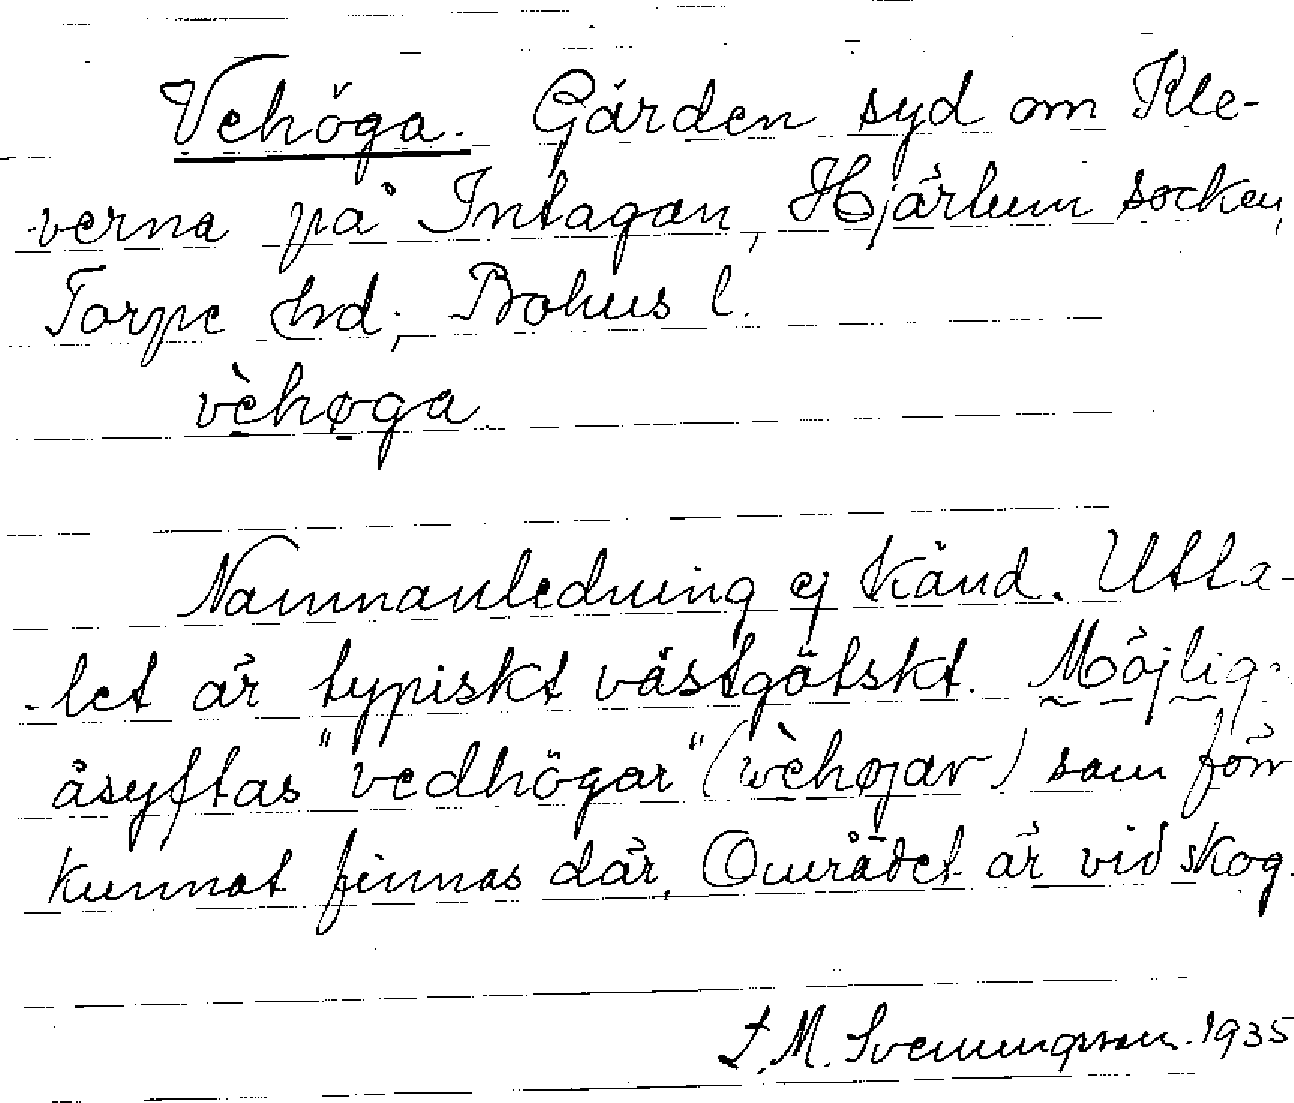 Vehöga. Gården syd om Kle-
verna på Intagan, Hjärtum socken,
Torpe hd, Bohus l.
vèhøga
Namnanledning ej känd. Utta-
let är typiskt västgötskt. Möjlig.
åsyftas "vedhögar" (vèhøjar) som förr
kunnat finnas där. Området är vid skog.
L. M. Svenungsson. 1935